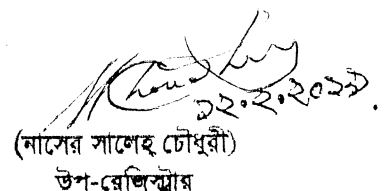 ১২.২.২০১৯.
(নাসের সালেহ চৌধুরী)
উপ-রেজিস্ট্রার